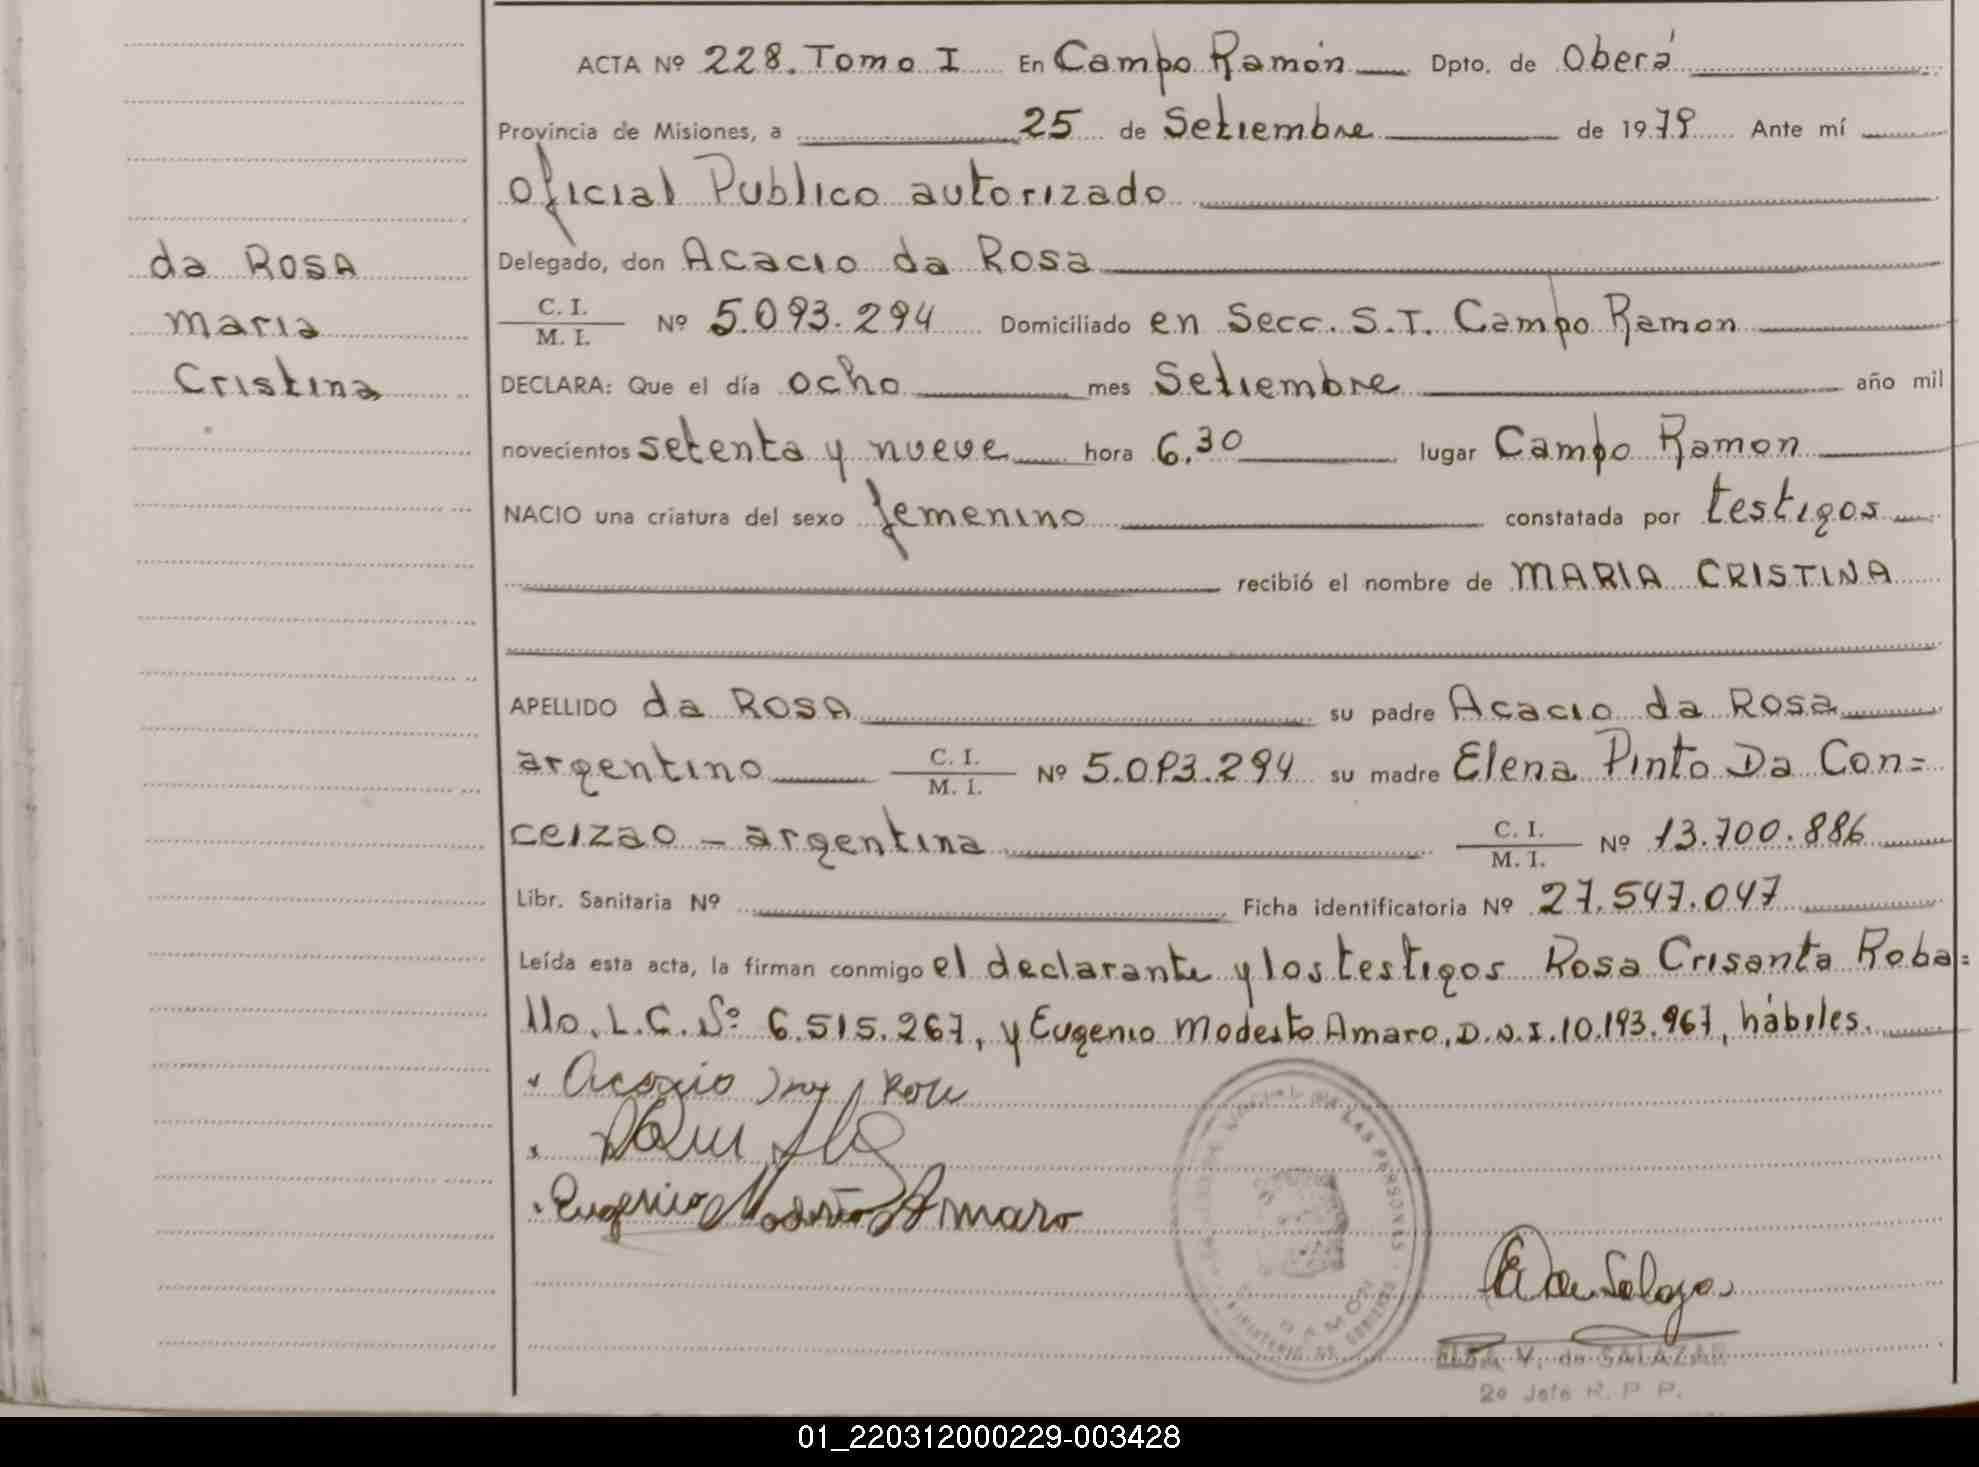 ACTA Nº 228. Tomo I En Campo Ramón Dpto. de Oberá
Provincia de Misiones, a 25 de Setiembre de 1979 Ante mí
oficial Publico autorizado
da ROSA
Maria
Cristina
Delegado, don Acacio da Rosa
C. I.
M. I. Nº 5.093.294 Domiciliado en Secc. S.T. Campo Ramon
DECLARA: Que el día ocho mes Setiembre año mil
novecientos setenta y nueve hora 6.30 lugar Campo Ramon
NACIO una criatura del sexo femenino constatada por testigos
recibió el nombre de MARIA CRISTINA
APELLIDO da ROSA su padre Acacio da Rosa
argentino C. I.
M. I. Nº 5.093.294 su madre Elena Pinto Da Con=
ceizao - argentina C. I.
M. I. Nº 13.700.886
Libr. Sanitaria Nº Ficha identificatoria Nº 27.547.047
Leída esta acta, la firman conmigo el declarante y los testigos Rosa Crisanta Roba=
llo, L.C. Nº 6.515.267, y Eugenio Modesto Amaro, D.N.I. 10.193.967, hábiles.
Eugenio Modesto Amaro
DE LAS PERSONAS
RAMON
MINISTERIO DE GOBIERNO
ELSA V. de SALAZAR
2º Jefe R. P. P.
01_220312000229-003428